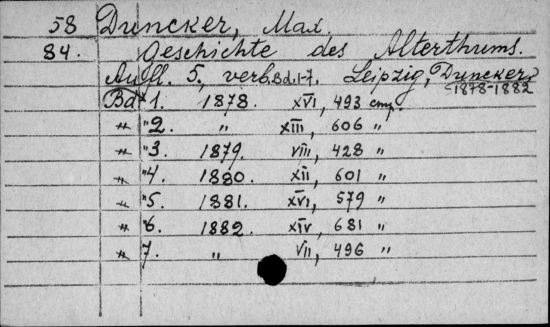 58 Duncker, Max
84. Geschichte des Alterthums.
Aufl. 5, verb. Bd. 1-7. Leipzig, Duncker,
1878-1882
Bd 1. 1878. XVI, 493 стр.
" "2. " XIII, 606 "
" "3. 1879. VIII, 428 "
" "4. 1880. XII, 601 "
" "5. 1881. XVI, 579 "
" "6. 1882. XIV, 681 "
" 7. " VII, 496 "